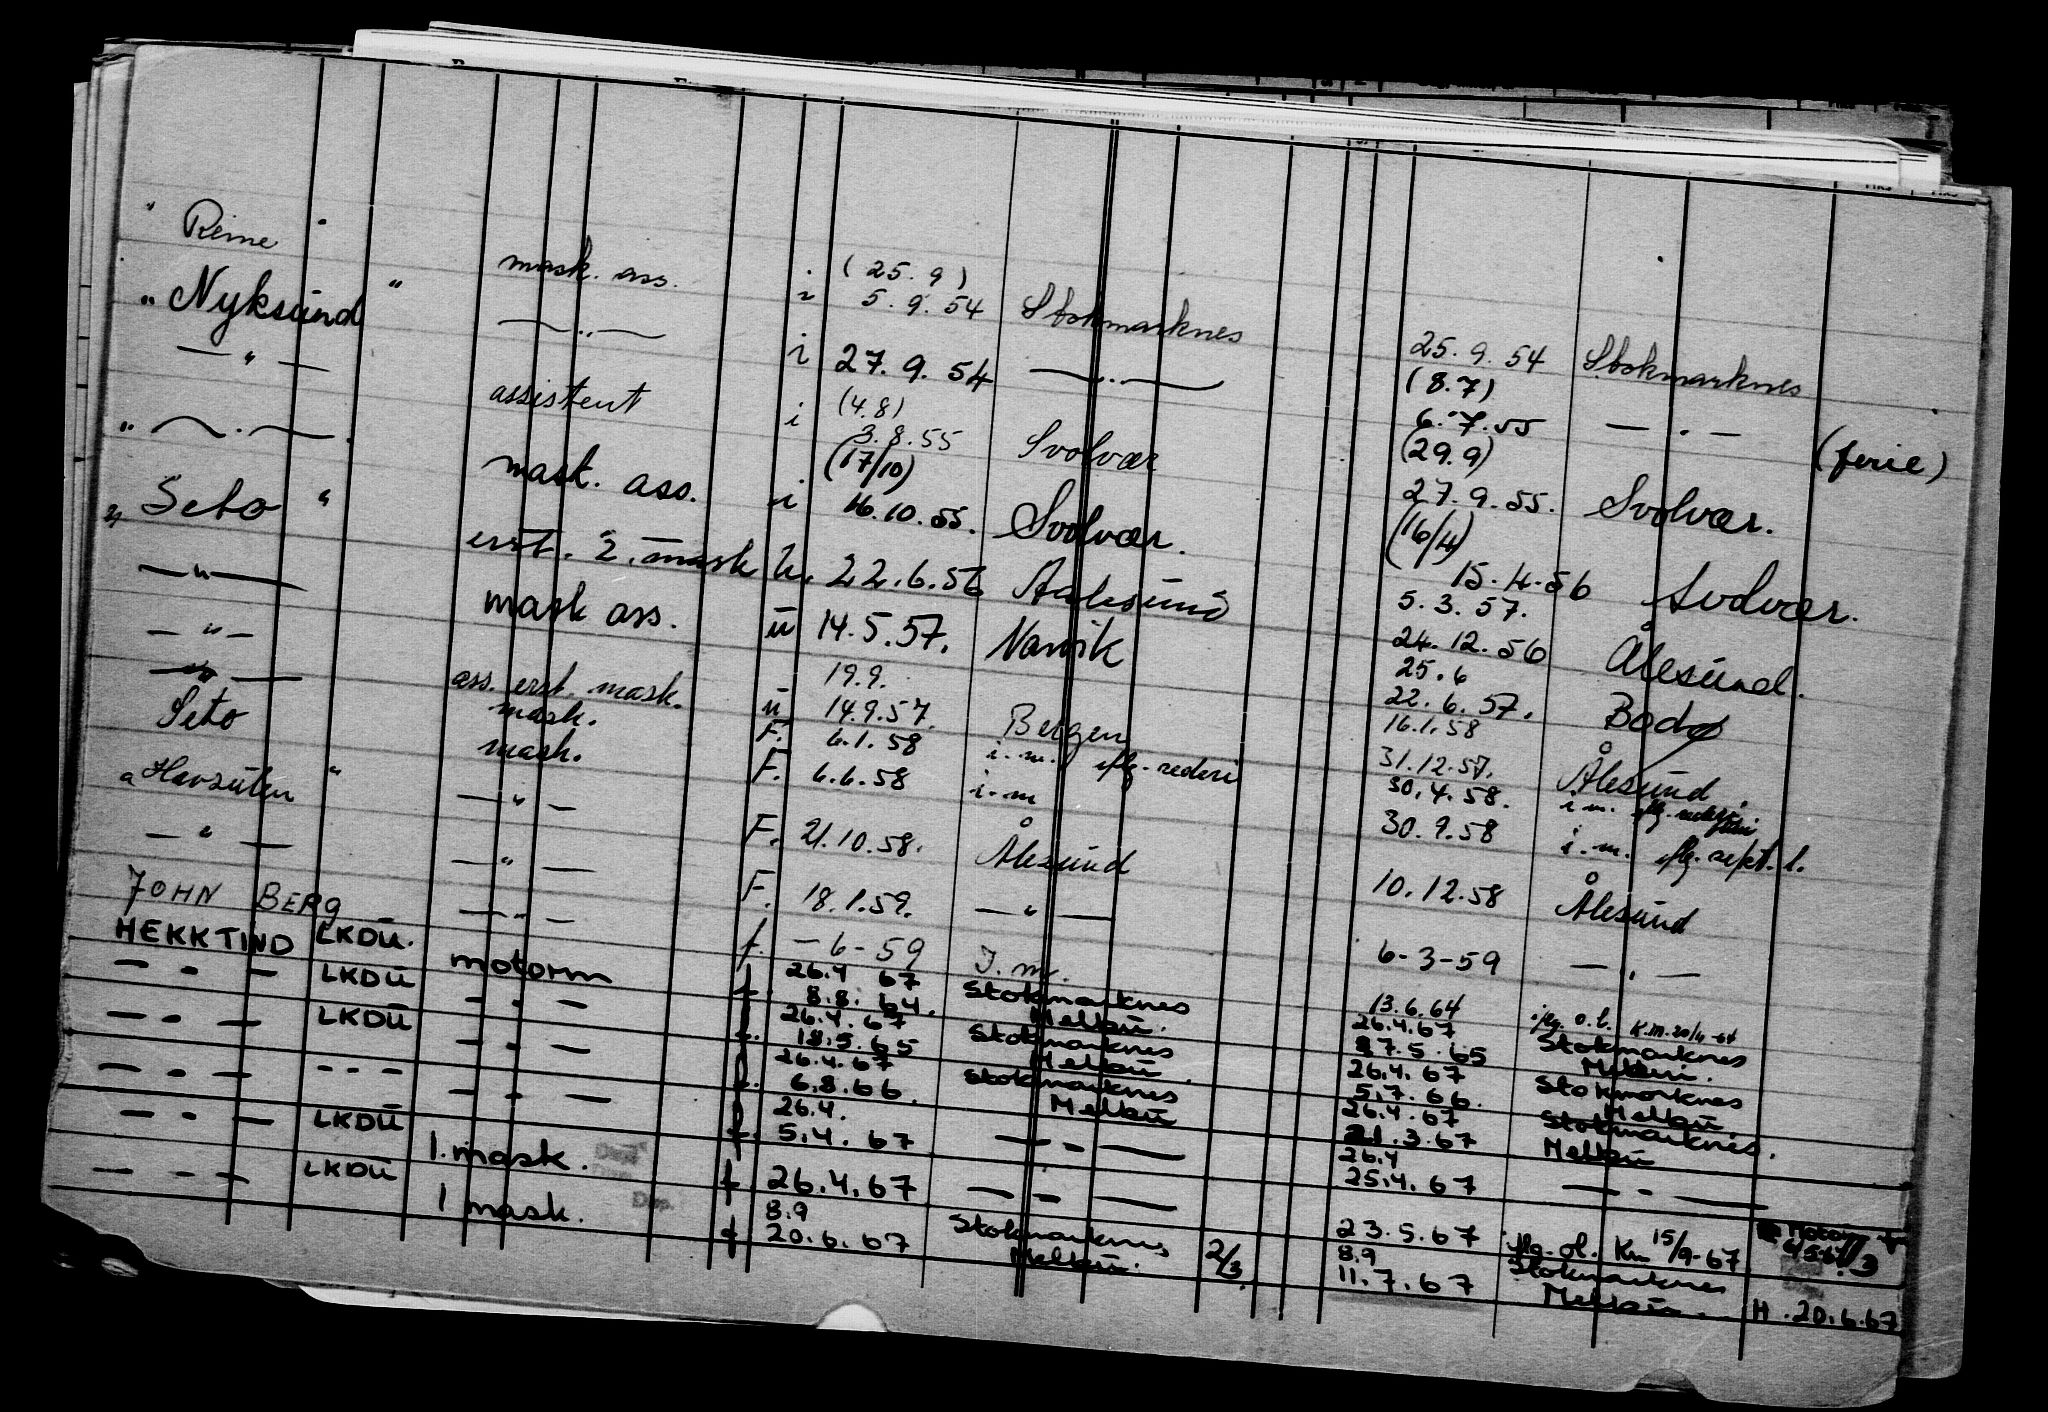 " Reine " mask. ass. i (25.9) 5.9.54 Stokmarknes 25.9.54 Stokmarknes
" Nyksund " — " — i 27.9.54 — " — (8.7) 6.7.55 — " — (ferie)
— " — assistent i (4.8) 3.8.55 Svolvær (29.9) 27.9.55. Svolvær.
" — " — mask. ass. i (17/10) 16.10.55. Svolvær. (16/4) 15.4.56 Svolvær.
" Seto " erst. 2. mask u. 22.6.56 Aalesund 5.3.57. 24.12.56 Ålesund.
— " — mask ass. u 14.5.57. Narvik 25.6 22.6.57. Bodø
— " — ass. erst. mask. u 19.9. 14.9.57. Bergen 16.1.58 31.12.57. Ålesund
— " — mask. F. 6.1.58 i.m. iflg. rederi 30.4.58. i.m. iflg.
Seto mask. F. 6.6.58 i.m 30.9.58 i.m. iflg. sept. l.
" Havsulen " — " — F. 21.10.58. Ålesund 10.12.58 Ålesund
— " — — " — F. 18.1.59. — " — 6-3-59 — " —
JOHN BERG — " — f. — 6 - 59 I.m. 13.6.64 iflg. o.l. K.m. 20/4-64
HEKKTIND LKDU. motorm f 26.4 67 8.8.64. Stokmarknes Melbu. 26.4.67 27.5.65 Stokmarknes Melbu.
— " — LKDU — " — f. 26.4.67 18.5.65 Stokmarknes Melbu. 26.4.67 5.7.66. Stokmarknes Melbu
— " — LKDU — " — f. 26.4.67 6.8.66. Stokmarknes Melbu 26.4.67 21.3.67 Stokmarknes. Melbu
— " — - - - — " — f. 26.4. 5.4.67 — " — 26.4 25.4.67 — " —
— " — LKDU 1. mask. f 26.4.67 — " — 23.5.67 iflg. ol. Km 15/9-67 Motorm
— " — LKDU 1 mask. f 8.9 20.6.67 Stokmarknes Melbu. 2/3 8.9 11.7.67 Stokmarknes Melbu. H. 20.6.67